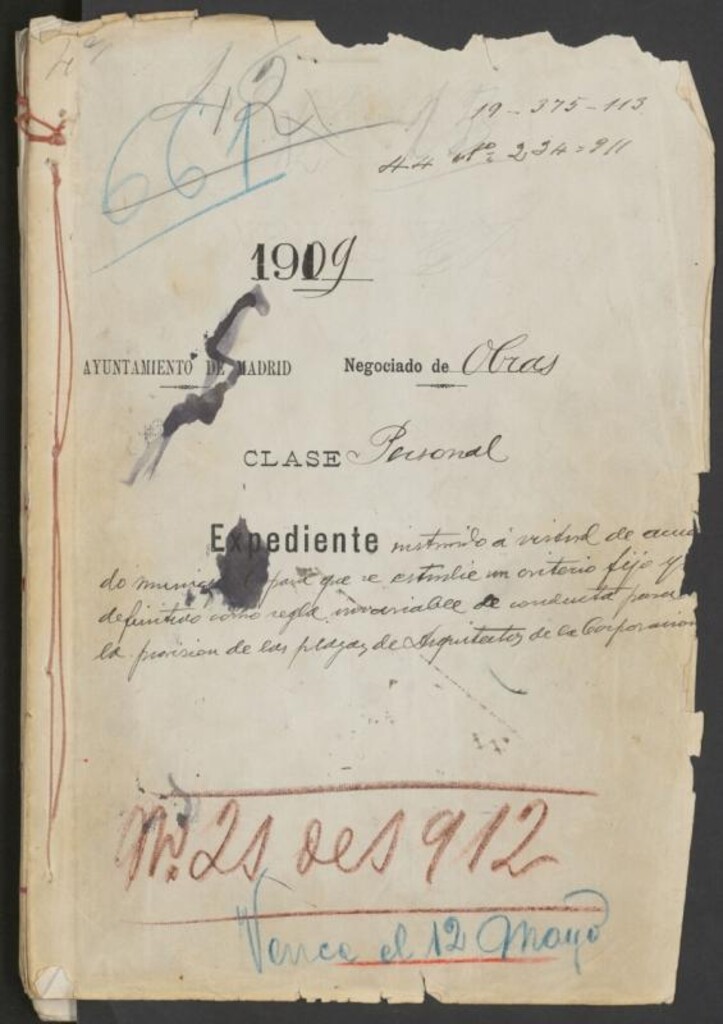 42
661
19-375-113
44 nº 234=911
1909
AYUNTAMIENTO DE MADRID Negociado de Obras
CLASE Personal
Expediente instruido á virtud de acuer
do para que se estudie un criterio fijo y
definitivo como regla invariable de conducta para
la provision de las plazas de Arquitectos de la Corporacion
Nº 21 del 912
Vence el 12 Mayo